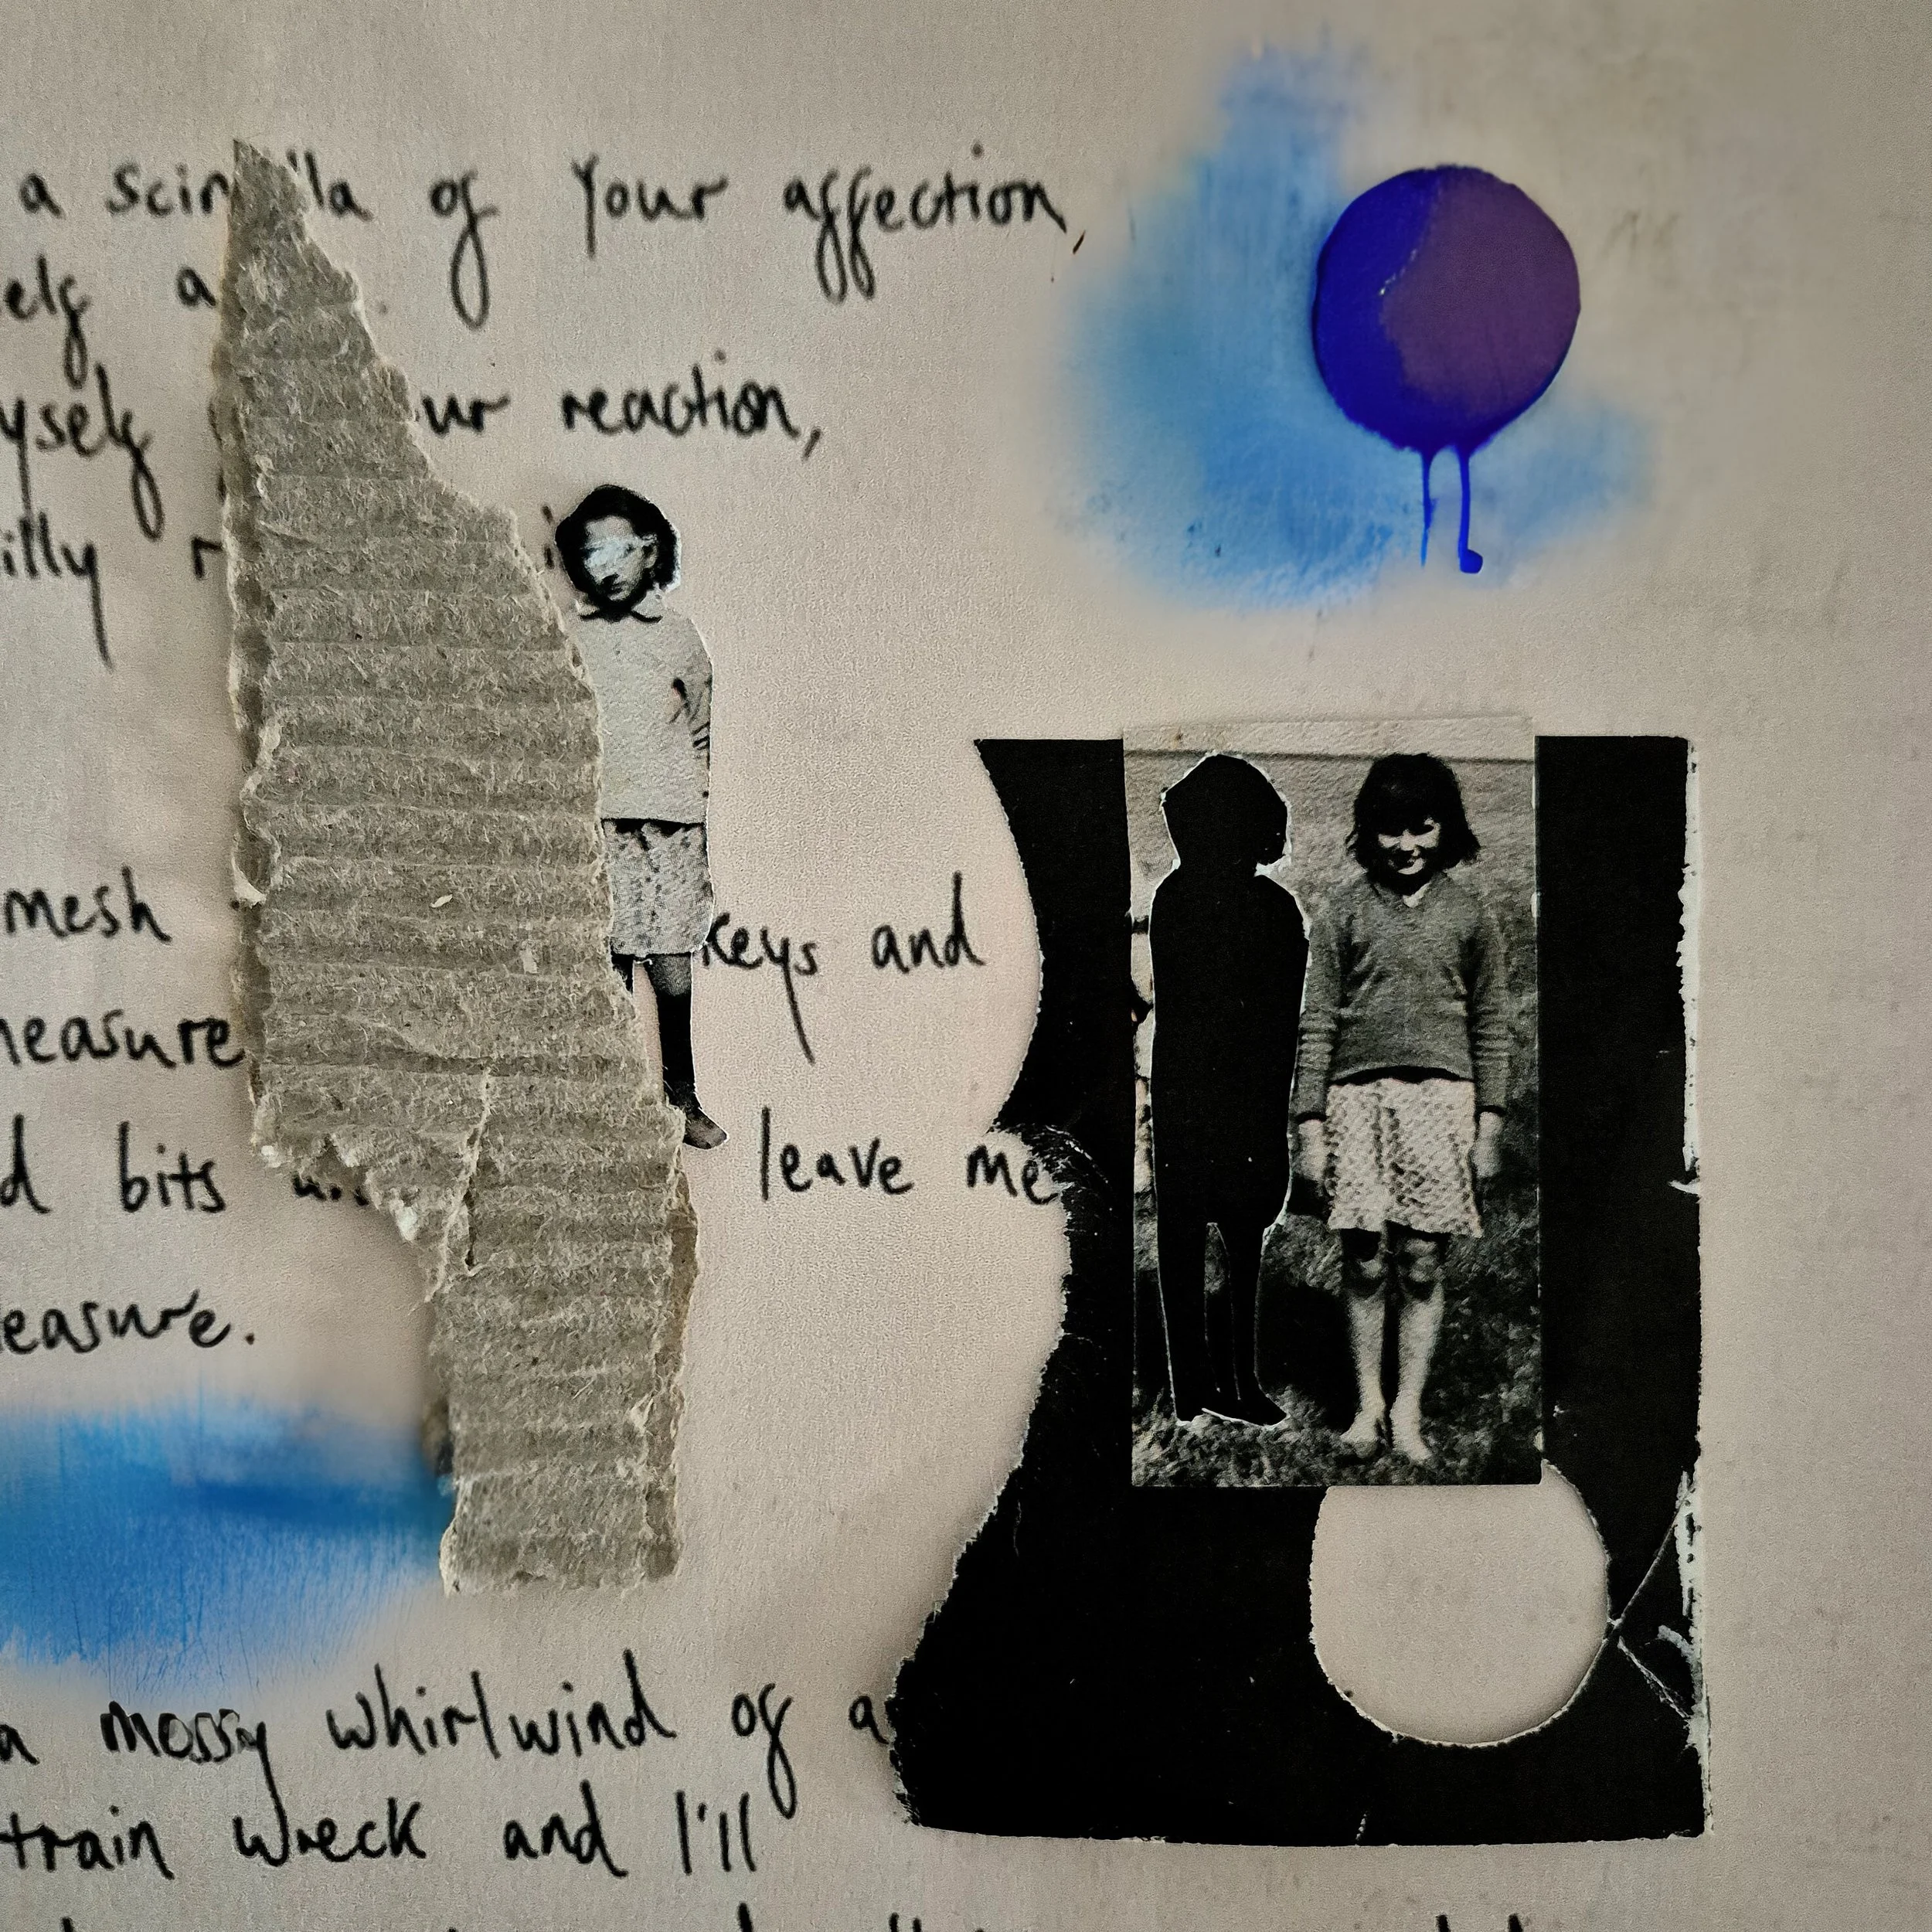 a scin lla of your affection,
elf a
yself ur reaction,
illy r
mesh keys and
measure
d bits leave me
easure.
a messy whirlwind of a
train wreck and I'll